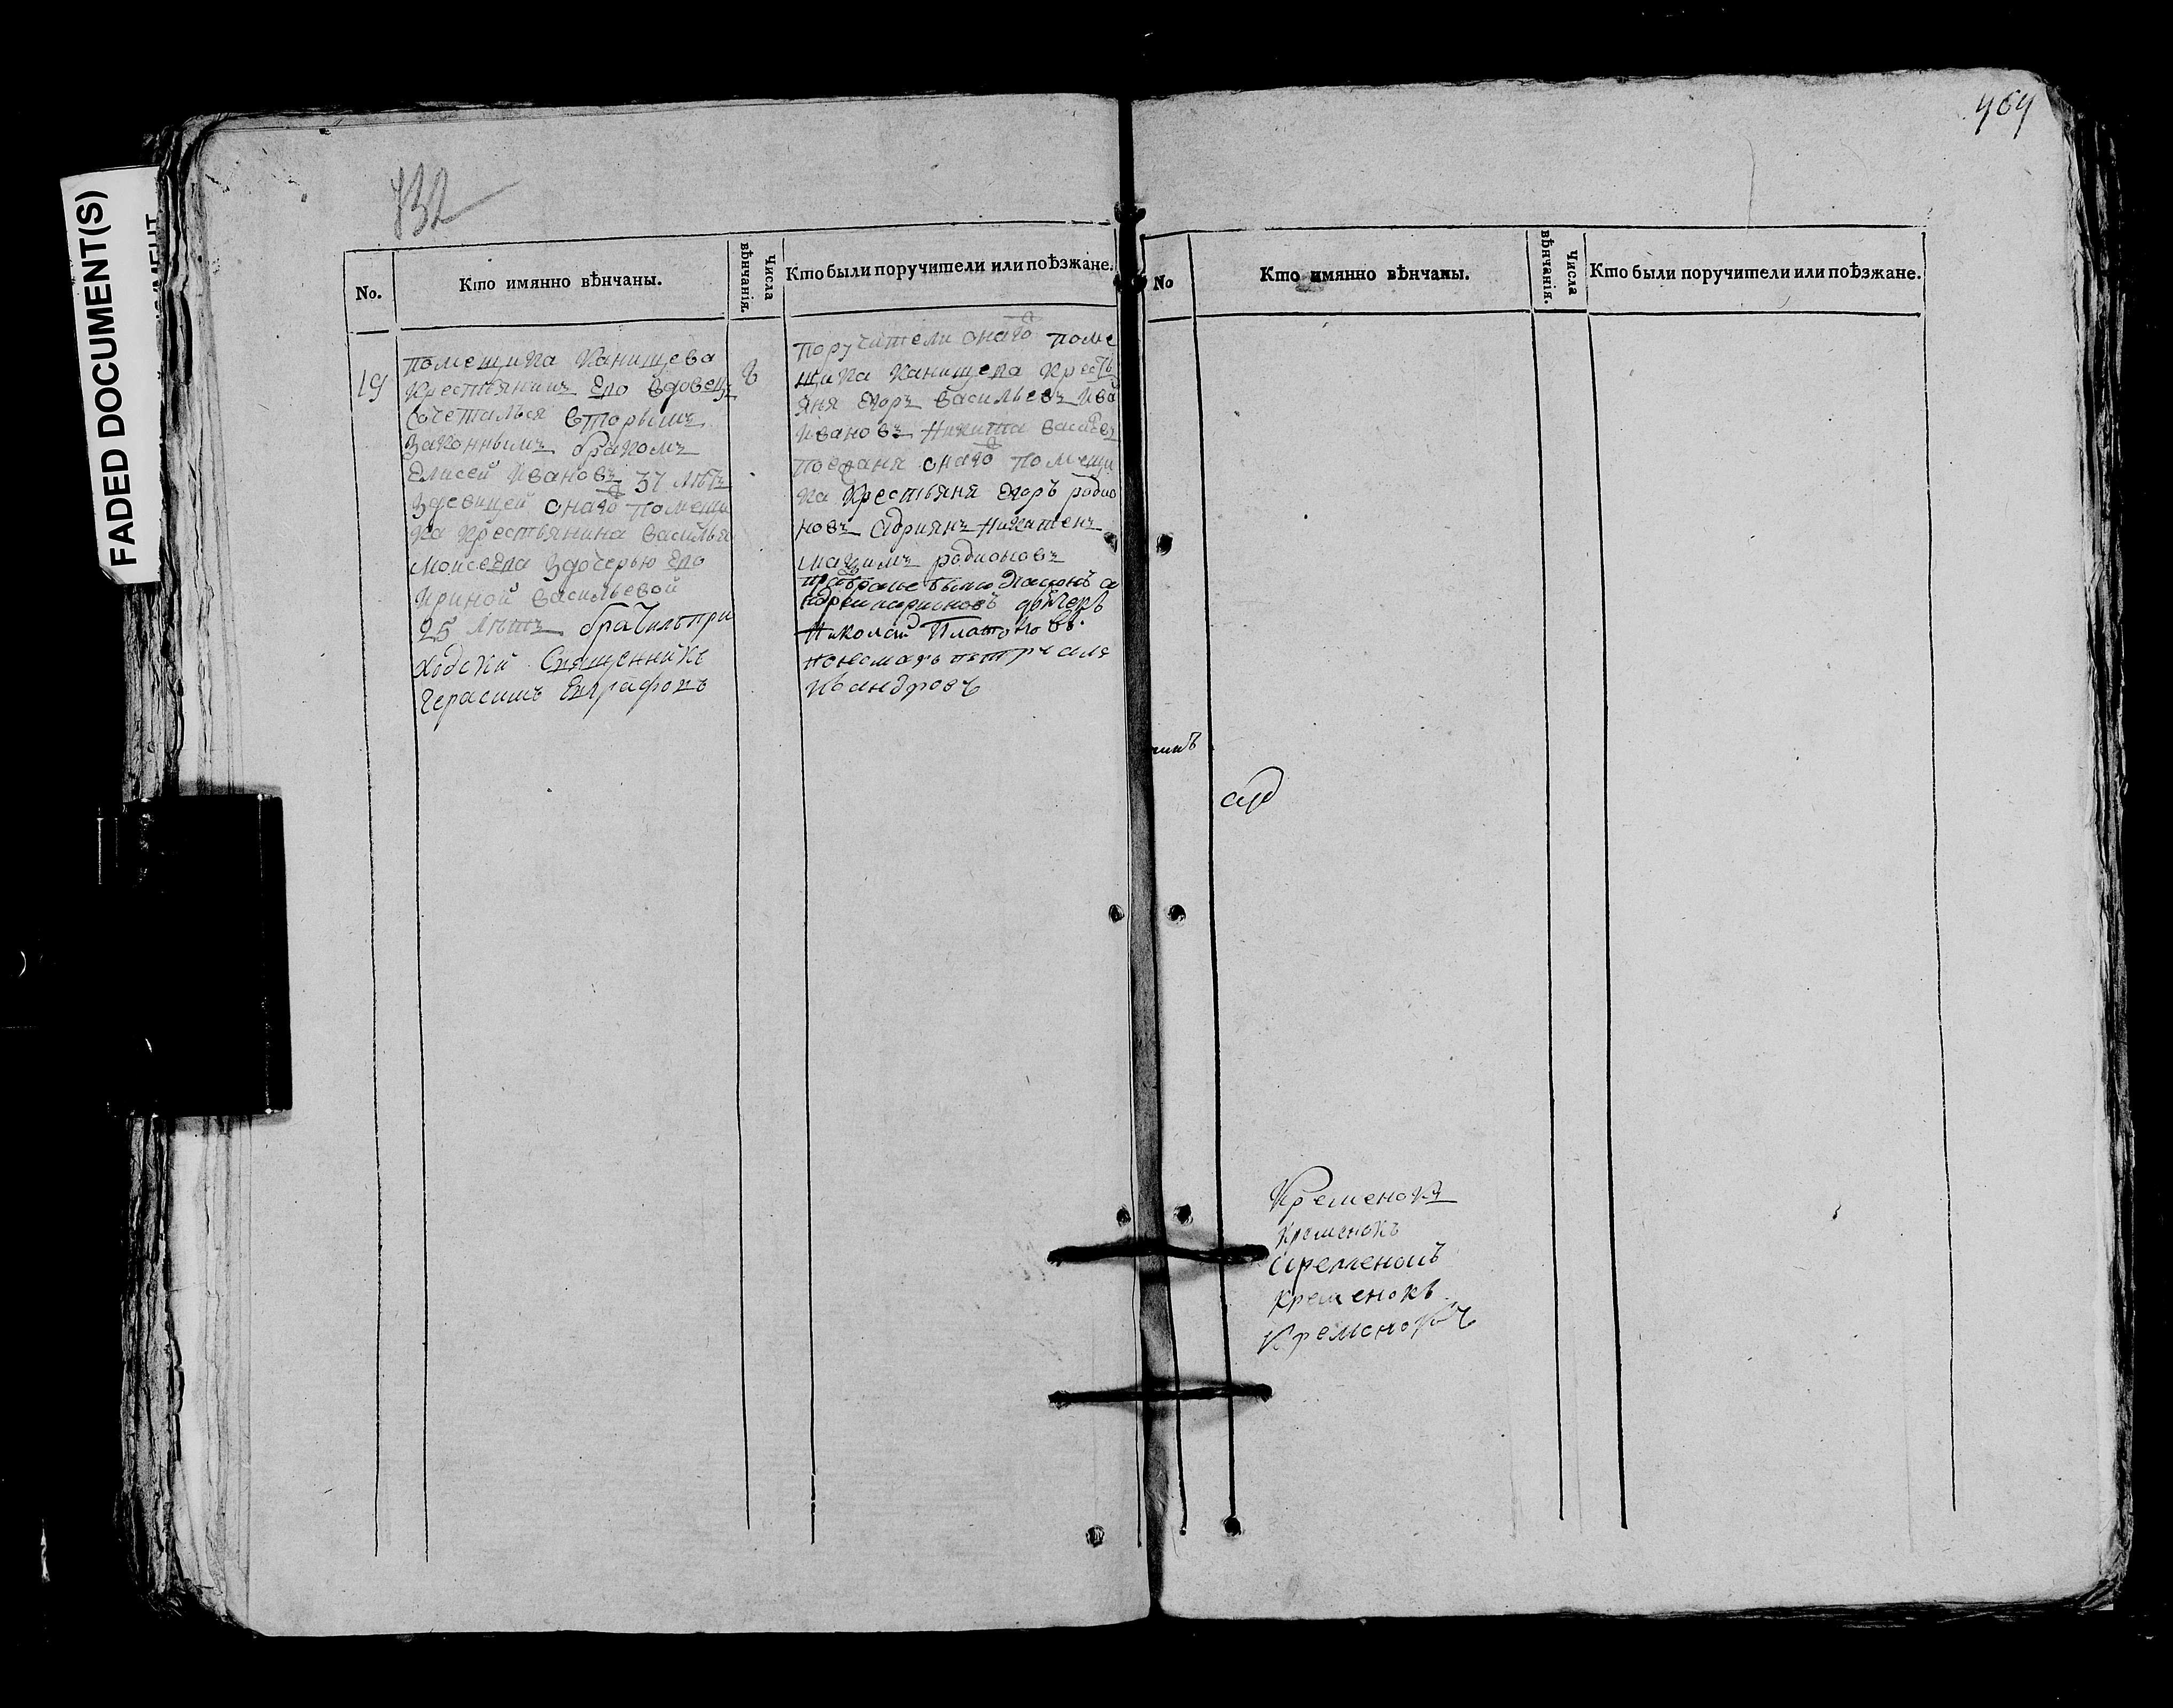 FADED DOCUMENT(S)
732
464
No.
Кто имянно вѣнчаны.
Числа вѣнчанія.
Кто были поручители или поѣзжане.
19
помещика Канищева
крестьянинъ Ево вдовецъ
сочетался вторымъ
законнымъ бракомъ
Елисей Ивановъ 37 лѣтъ
здевицей онаго помещи
ка крестьянина Василья
Моисеева здочерью Ево
Ириной Васильевой
25 лѣтъ бра при
ходскій Священникъ
Герасимъ Евграфовъ
8
поручители онаго поме
щика Канищева кресть
яня Егоръ Васильевъ Ива
Ивановъ Никита Васильевъ
поезжаня онаго помещи
ка крестьяня Егоръ родио
новъ Адриянъ Никитенъ
Мазимъ родионовъ
при были
Николай Платоновъ
пономарь петръ але
ксандровъ
No
Кто имянно вѣнчаны.
Числа вѣнчанія.
Кто были поручители или поѣзжане.
Кременокъ
кременокъ
кременокъ
Кременокъ